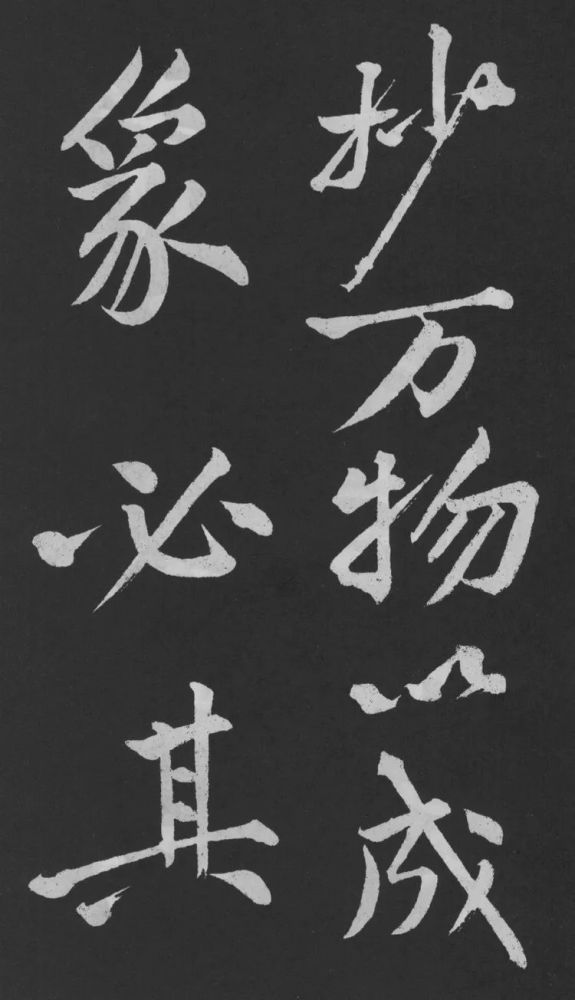 抄万物以成
象必其